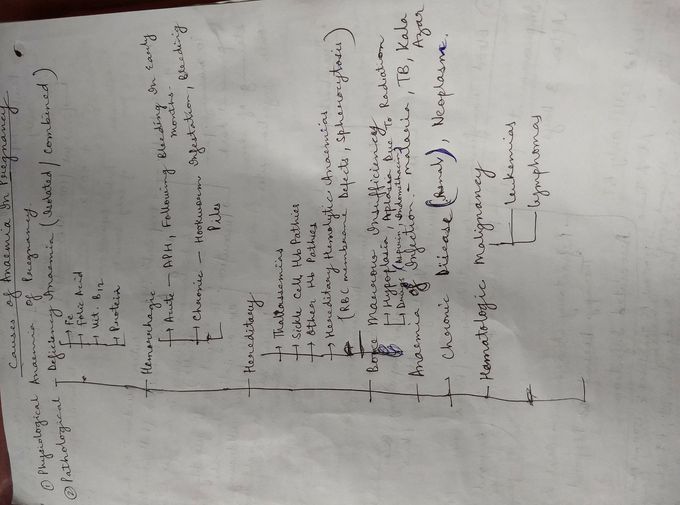 Causes of Anaemia In Pregnancy
① Physiological Anaemia of Pregnancy
② Pathological
Deficiency Anaemia (Isolated / Combined)
Fe
Folic Acid
Vit. B12
Protein
Hemorrhagic
Acute - APH, Following Bleeding In Early
months.
Chronic - Hookworm Infestation, Bleeding
Piles
Hereditary
Thalassemias
Sickle Cell Hb Pathies
Other Hb Pathies
Hereditary Hemolytic Anaemias
(RBC membrane Defects, Spherocytosis)
Bone Marrow Insufficiency
Hypoplasia, Aplasia Due To Radiation
Drugs (Aspirin, Indomethacin)
Anaemia of Infection - malaria, TB, Kala
Azar
Chronic Disease (Renal), Neoplasm.
Hematologic Malignancy
leukemias
lymphomas